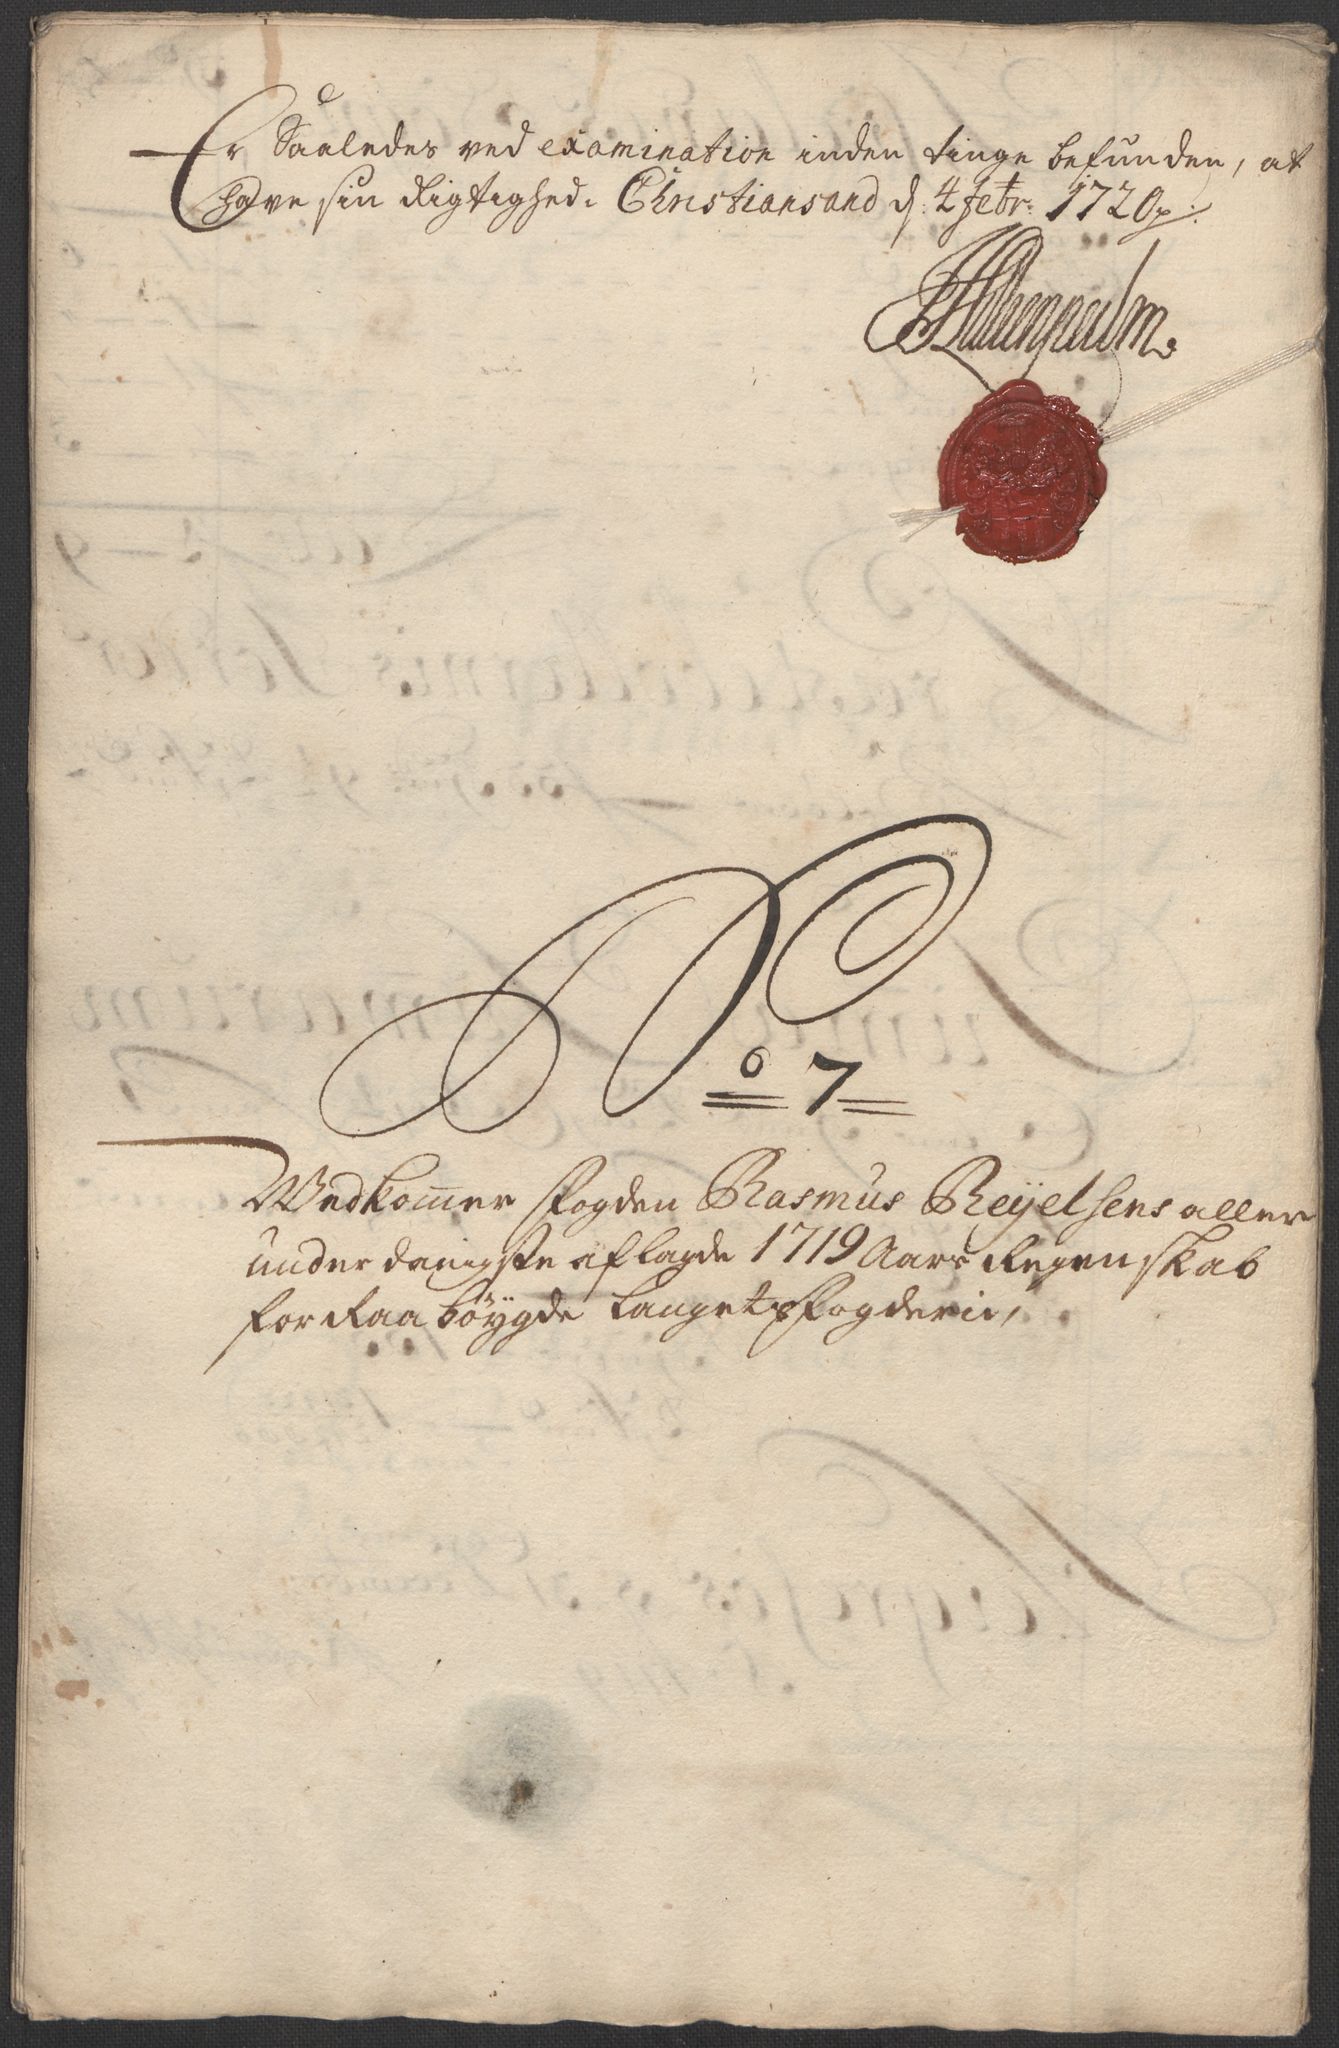 Er Saaledes ved examination inden tinge befunden, at
Have sin Rigtighed. Christiansand d. 4 Febr: 1720
No 7
Vedkom̅er Fogden Rasmus Reÿelsens aller
underdanigste aflagde 1719 Aars Regenskab
for Raabÿgde Laugets Fogderie,